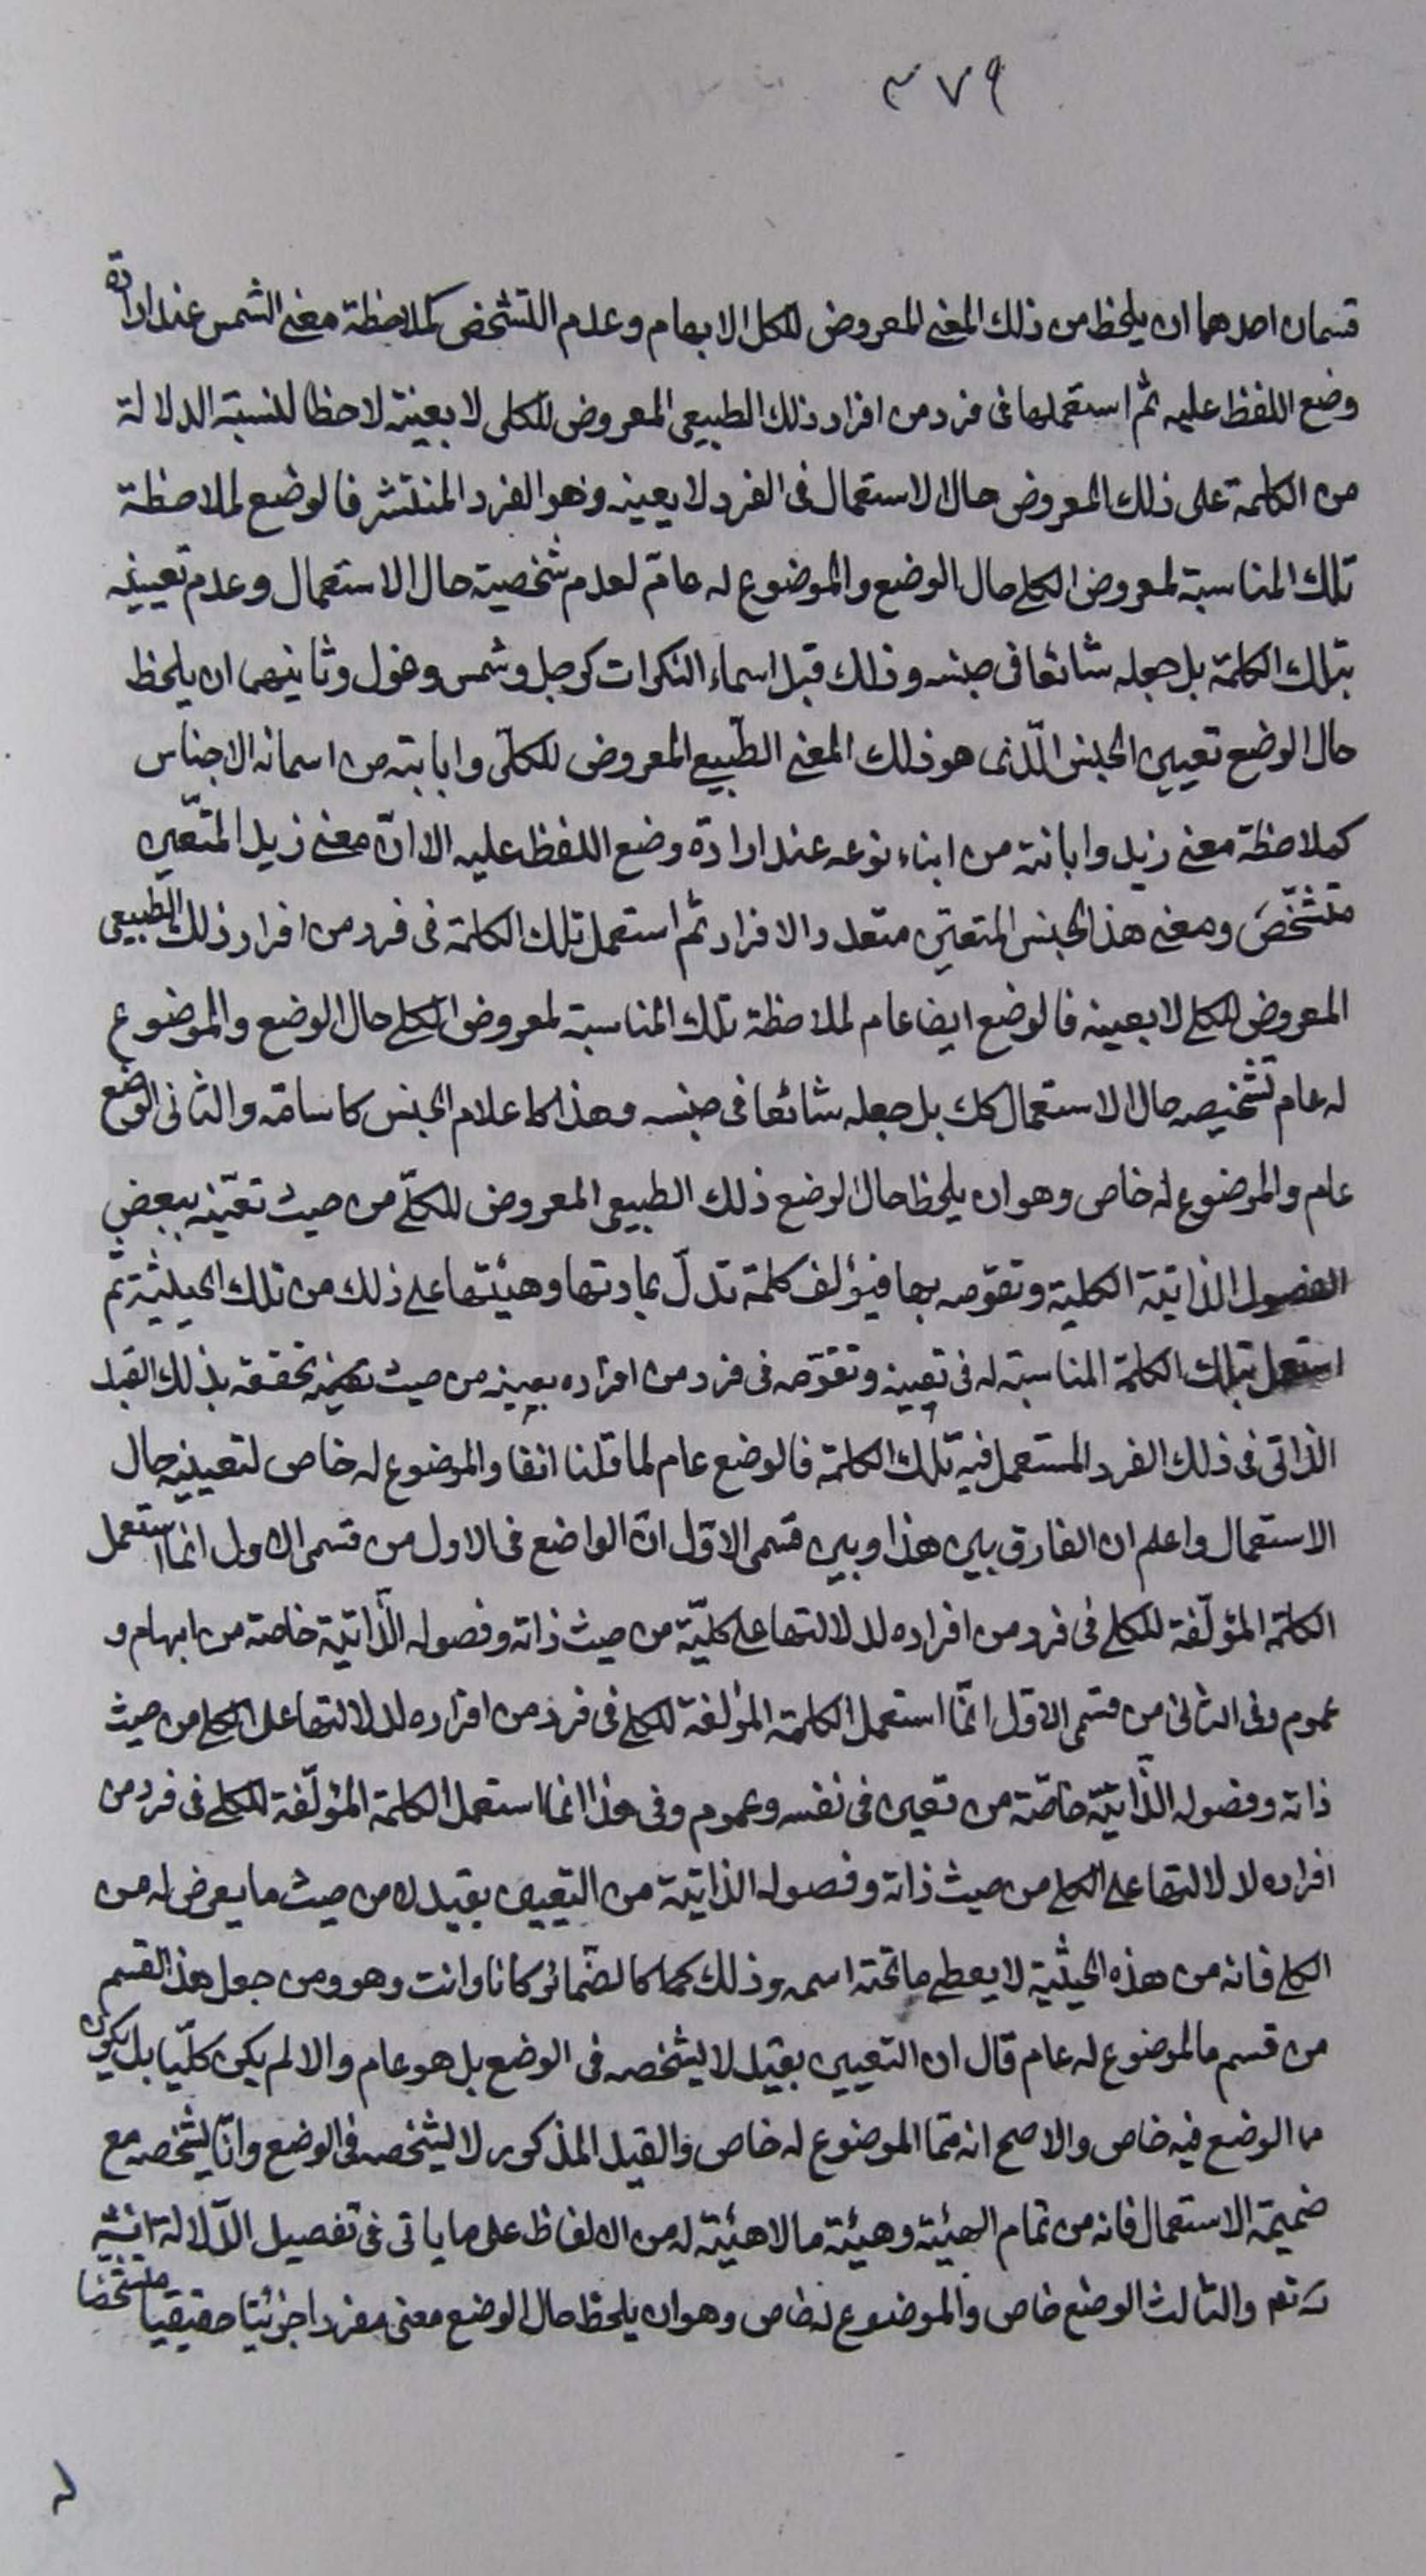 ٣٧٩
قسمان احدهما ان يلحظ من ذلك المعنى المعروض للكل الابهام وعدم التشخص كملاحظة معنى الشمس عند ارادة
وضع اللفظ عليه ثم استعملها فى فرد من افراد ذلك الطبيعى المعروض للكلى لا بعينه لاحظا للنسبة الدلالة
من الكلمة على ذلك المعروض حال الاستعمال فى الفرد لا بعينه وهو الفرد المنتشر فالوضع لملاحظة
تلك المناسبة لمعروض الكلى حال الوضع والموضوع له عام لعدم شخصية حال الاستعمال وعدم تعيينه
بتلك الكلمة بل جعله شائعا فى جنسه وذلك قبل اسماء النكرات كرجل وشمس وغول وثانيهما ان يلحظ
حال الوضع تعيين الجنس الّذى هو ذلك المعنى الطّبيعى المعروض للكلّى وابانته من اسمانه الاجناس
كملاحظة معنى زيد وابانته من ابناء نوعه عند ارادة وضع اللفظ عليه الا انّ معنى زيد المتعّين
متشخّص ومعنى هذا الجنس المتعيّن متعدد الافراد ثم استعمل تلك الكلمة فى فرد من افراد ذلك الطبيعى
المعروض للكلى لا بعينه فالوضع ايضا عام لملاحظة تلك المناسبة لمعروض الكلى حال الوضع والموضوع
له عام تشخيصه حال الاستعمال كك بل جعله شائعا فى جنسه وهذا كاعلام الجنس كاسامة والثانى الوضع
عام والموضوع له خاص وهو ان يلحظ حال الوضع ذلك الطبيعى المعروض للكلّى من حيث تعيّنه ببعض
الفصول الذاتية الكلية وتقوّمه بها فيؤلف كلمة تدلّ بمادتها وهيئتها على ذلك من تلك الحيثية ثم
استعمل بتلك الكلمة المناسبة له فى تعيينه وتقوّمه فى فرد من افراده بعينه من حيث تحققه بذلك القيد
الذاتى فى ذلك الفرد المستعمل فيه تلك الكلمة فالوضع عام لما قلنا انفا والموضوع له خاص لتعيينه حال
الاستعمال واعلم ان الفارق بين هذا وبين قسمى الاوّل انّ الواضع فى الاول من قسمى الاول انما استعمل
الكلمة المؤلّفة للكلى فى فرد من افراده لدلالتها على كليّة من حيث ذاته وفصوله الذّاتيّة خاصة من ابهام و
عموم وفى الثانى من قسمى الاوّل انّما استعمل الكلمة المؤلفة للكلى فى فرد من افراده لدلالتها على الكلى من حيث
ذاته وفصوله الذّاتيّة خاصّة من تعين فى نفسه وعموم وفى هذا انما استعمل الكلمة المؤلّفة للكلى فى فرد من
افراده لدلالتها على الكلى من حيث ذاته وفصوله الذاتية من التعيين بقيد لا من حيث ما يعرض له من
الكلى فانه من هذه الحيثية لا يعطى ما تحته اسمه وذلك كالضمائر كانا وانت وهو ومن جعل هذا القسم
من قسم ما الموضوع له عام قال ان التعيين بقيد لا يشخصه فى الوضع بل هو عام والا لم يكن كلّيا بل يكون
مما الوضع فيه خاص والاصح انه ممّا الموضوع له خاص والقيد المذكور لا يشخصه فى الوضع وانّما يشخصه مع
ضميمة الاستعمال فانه من تمام الهيئة وهيئة ما لا هيئة له من الالفاظ على ما ياتى فى تفصيل الدّلالة انش
تع والثالث الوضع خاص والموضوع له خاص وهو ان يلحظ حال الوضع معنى مفردا جزئيّا حقيقيا متشخصا